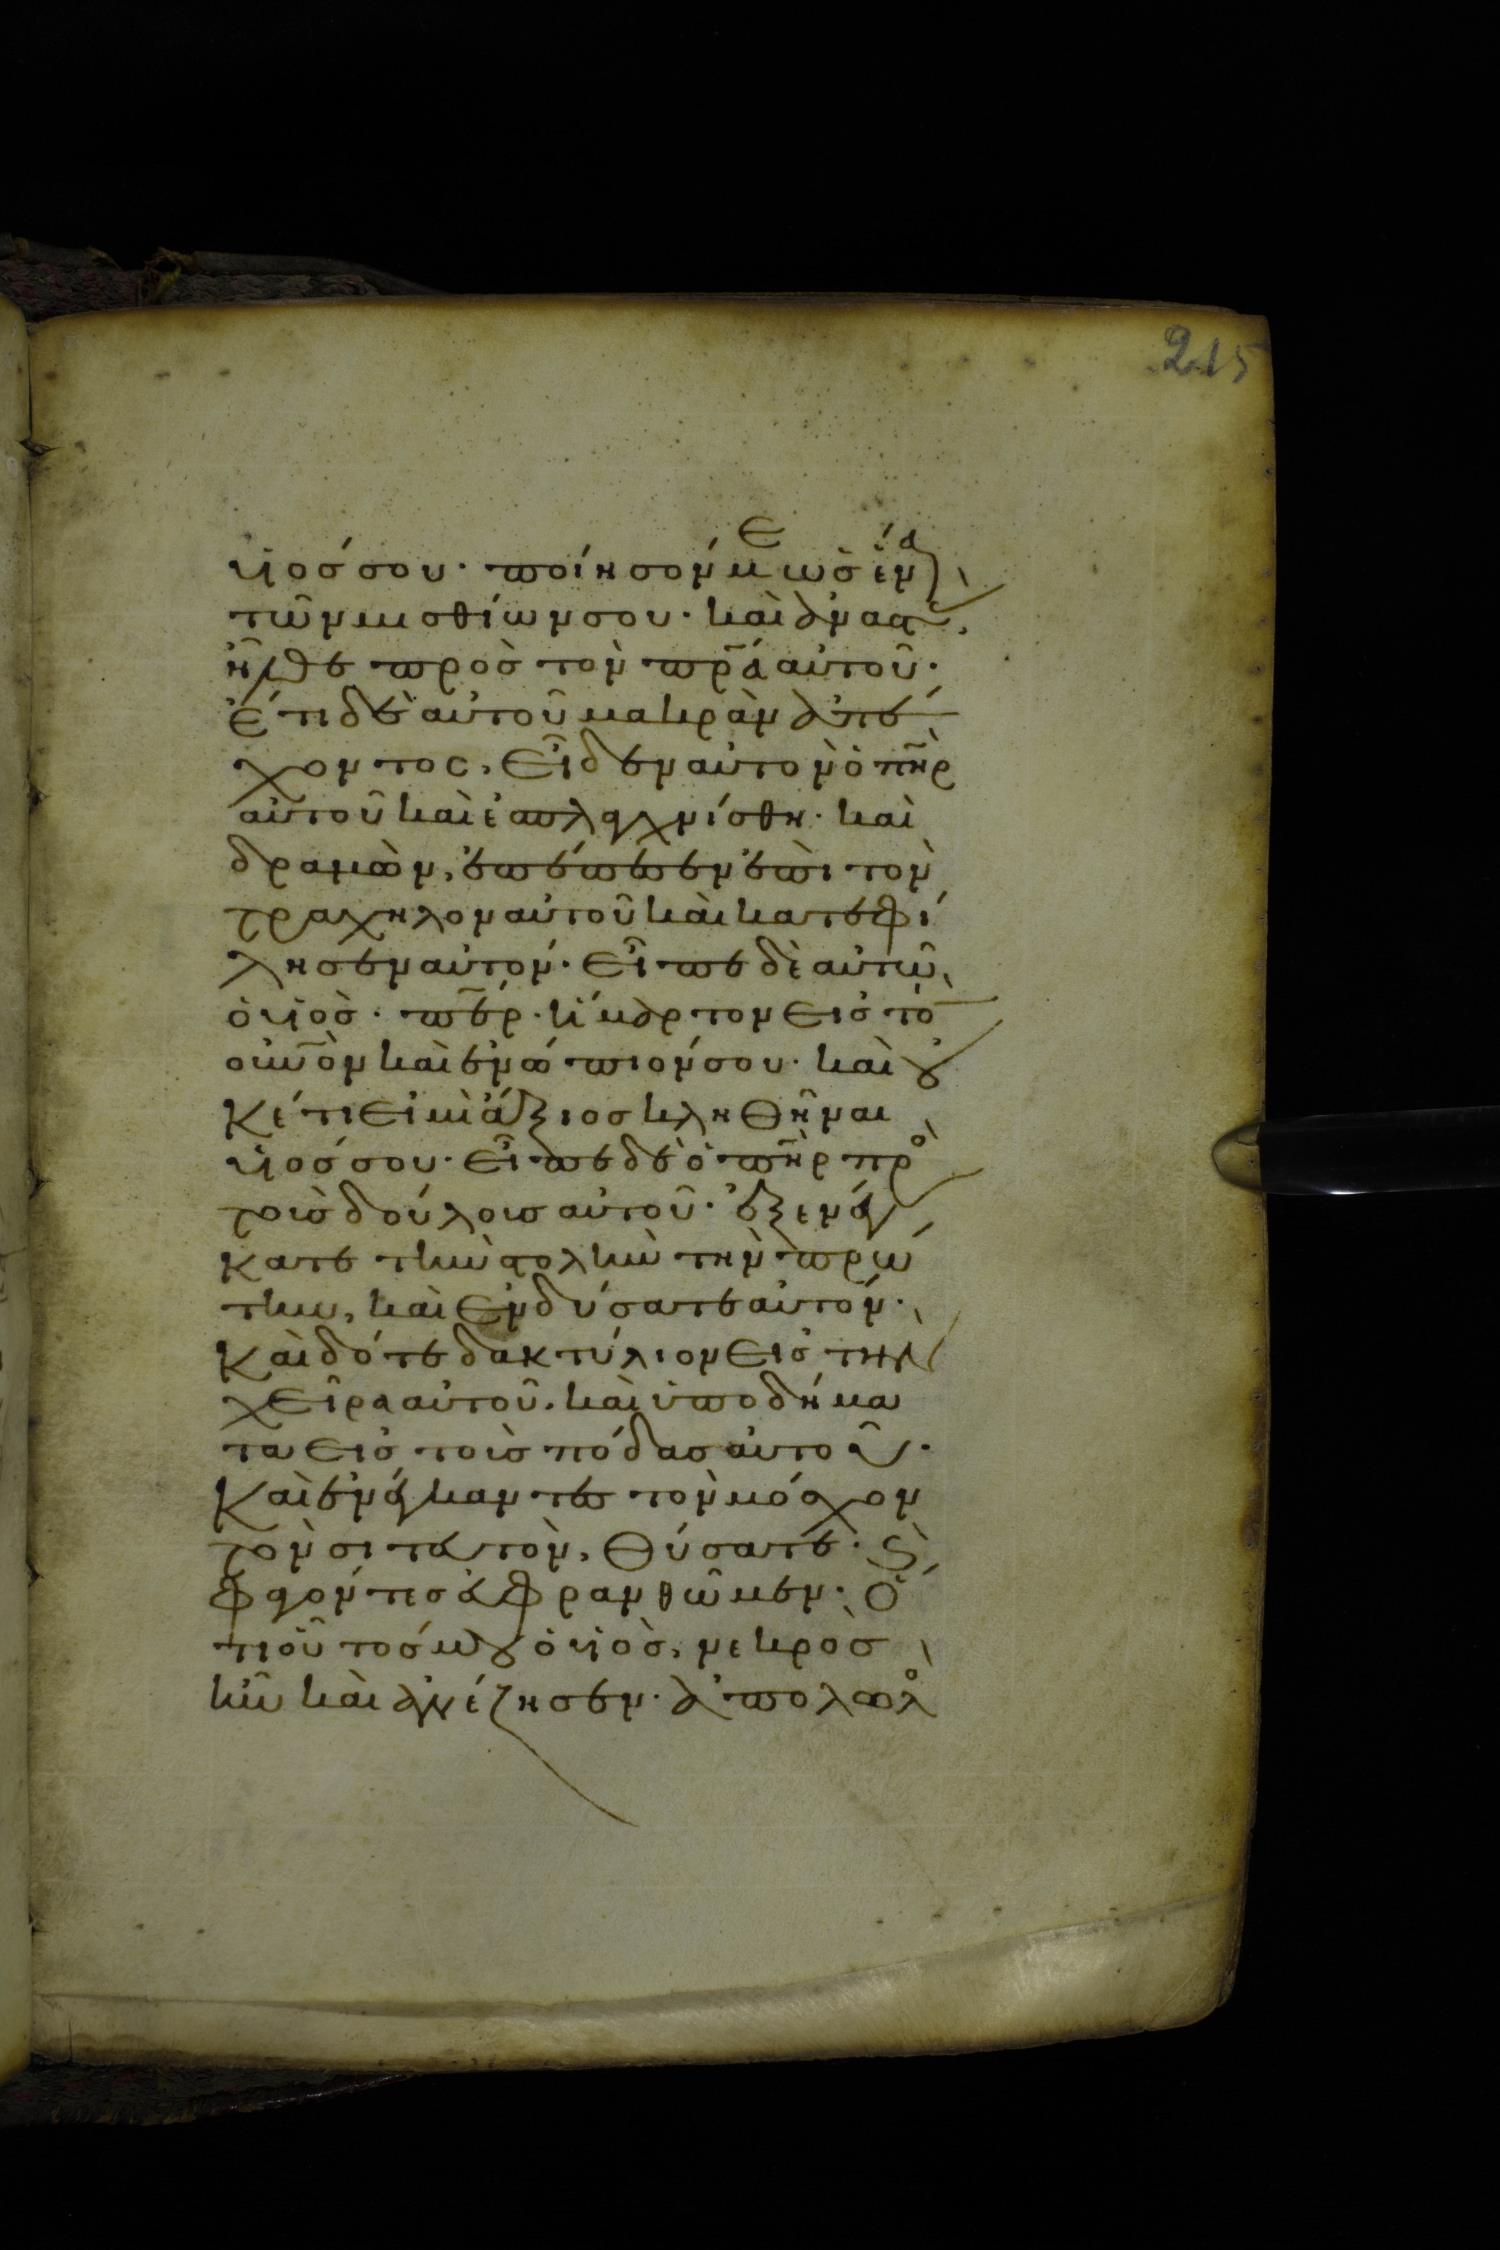 215
υἱός σου· ποίησόν με ὡς ἕνα
τῶν μισθίων σου· καὶ ἀναστ(ὰς),
ἦλθε πρὸς τὸν πρ̅α αὐτοῦ·
Ἔτι δὲ αὐτοῦ μακρὰν ἀπέ
χοντος, Εἶδεν αὐτὸν ὁ πη̅ρ
αὐτοῦ καὶ ἐσπλαγχνίσθη· καὶ
δραμὼν, ἐπέπεσεν ἐπὶ τὸν
τραχηλον αὐτοῦ καὶ κατεφί
λησεν αὐτόν· Εἶπε δὲ αὐτῶ
ὁ υἱὸς· πε̅ρ· ἥμαρτον Εἰς τὸ(ν)
οὐν̅ὸν καὶ ἐνώπιόν σου· καὶ οὐ
Κέτι Εἰμὶ ἄξιος κληΘῆναι
υἱός σου· Εἶπε δὲ ὁ πη̅ρ πρὸ(ς)
τοὺς δούλους αὐτοῦ· ἐξενέγ
Κατε τὴν στολὴν τὴν πρώ
την, καὶ Ἐνδύσατε αὐτόν·
Καὶ δότε δακτύλιον Εἰς τὴν
χΕῖρα αὐτοῦ· καὶ ὑποδήμα
τα Εἰς τοὺς πόδας αὐτοῦ·
Καὶ ἐνέγκαντες τὸν μόσχον
τὸν σιτευτὸν, Θύσατε· Ϛ̀
Φαγόντες εὐφρανθῶμεν· Ὅ
τι οὗτός μου ὁ υἱὸς, νεκρὸς
ἦν καὶ ἀνέζησεν· ἀπολωλ(ὼς)